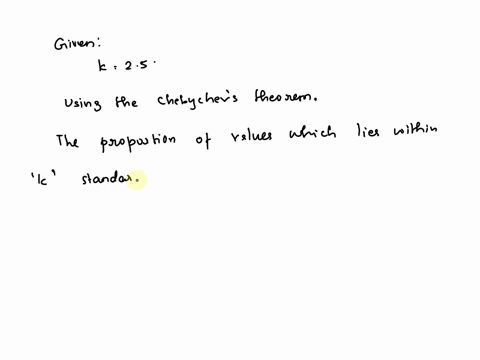 Given:
k = 2.5.
Using the Chebychev's theorem.
The proportion of values which lies within
'k' standar.